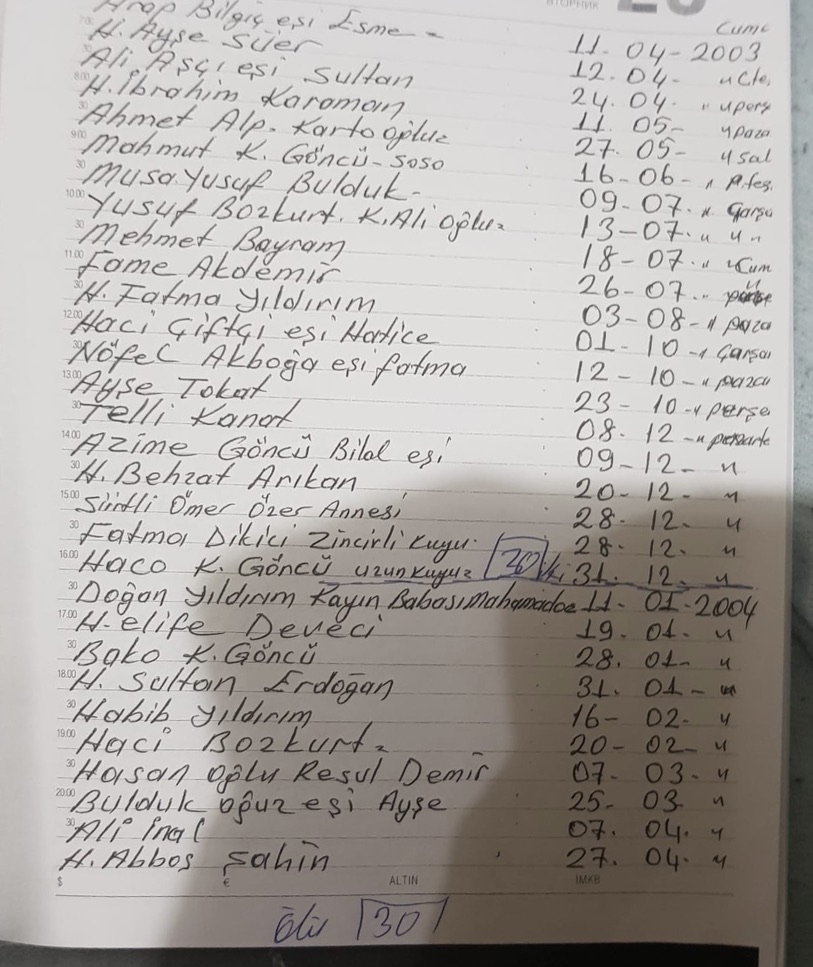 ВТОРНИК
Arap Bilgiç eşi Esme - Cuma
H. Ayşe Süer 11. 04 - 2003
Ali Aşçı eşi Sultan 12. 04 - " Cte.
H. İbrahim Karaman 24. 04. " " perş
Ahmet Alp. Kartooğlu 11. 05 - " paza
Mahmut K. Göncü - Soso 27. 05 - " sal
Musa Yusuf Bulduk - 16 - 06 - "
Yusuf Bozkurt. K. Ali oğlu 09 - 07. " Çarşa
Mehmet Bayram 13 - 07. " " "
Fame Akdemir 18 - 07. " " Cum
H. Fatma Yıldırım 26 - 07. "
Haci Çiftçi eşi Hatice 03 - 08 - " paza
Nöfel Akboğa eşi fatma 01 - 10 - " Çarşa
Ayşe Tokat 12 - 10 - " paza
Telli Kanat 23 - 10 - " perşe
Azime Göncü Bilal eşi 08. 12 - "
H. Behzat Arıkan 09 - 12 - "
Siirtli Ömer Özer Annesi 20 - 12 - "
Fatma Dikici Zincirli kuyu. 28 - 12. "
Haco K. Göncü uzunkuyu 20 28. 12. "
31. 12. "
Doğan Yıldırım Kayın Babası 11 - 01 - 2004
H. elife Deveci 19. 01. "
Bako K. Göncü 28. 01 - "
H. Sultan Erdoğan 31. 01 - "
Habib Yıldırım 16 - 02 - "
Haci Bozkurt 20 - 02 - "
Hasan oğlu Resul Demir 07 - 03. "
Bulduk oğuz eşi Ayşe 25 - 03 "
Ali inal 07. 04. "
H. Abbas Şahin 27. 04. "
$ € ALTIN IMKB
30